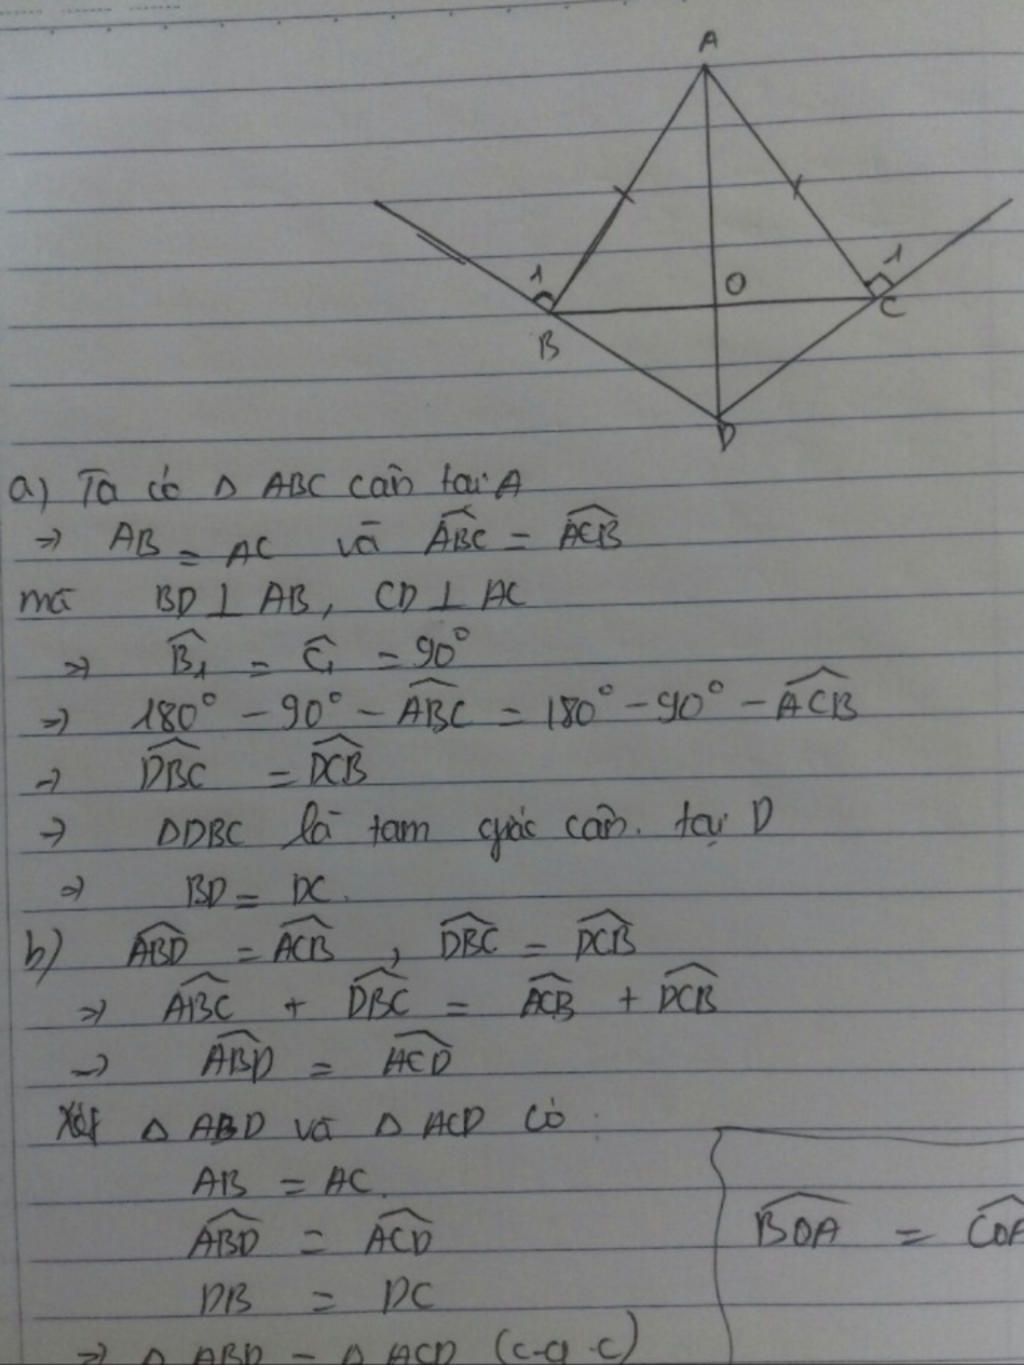 A
1
1
O
B
C
D
a) Ta có Δ ABC cân tại A
=> AB = AC và \widehat{ABC} = \widehat{ACB}
mà BD ⊥ AB, CD ⊥ AC
=> \widehat{B_1} = \widehat{C_1} = 90°
=> 180° - 90° - \widehat{ABC} = 180° - 90° - \widehat{ACB}
=> \widehat{DBC} = \widehat{DCB}
=> ΔDBC là tam giác cân tại D
=> BD = DC.
b) \widehat{ABD} = \widehat{ACB}, \widehat{DBC} = \widehat{DCB}
=> \widehat{ABC} + \widehat{DBC} = \widehat{ACB} + \widehat{DCB}
=> \widehat{ABD} = \widehat{ACD}
Xét Δ ABD và Δ ACD có
AB = AC.
\widehat{ABD} = \widehat{ACD}
DB = DC
=> Δ ABD = Δ ACD (c-g-c)
\widehat{BOA} = \widehat{COA}